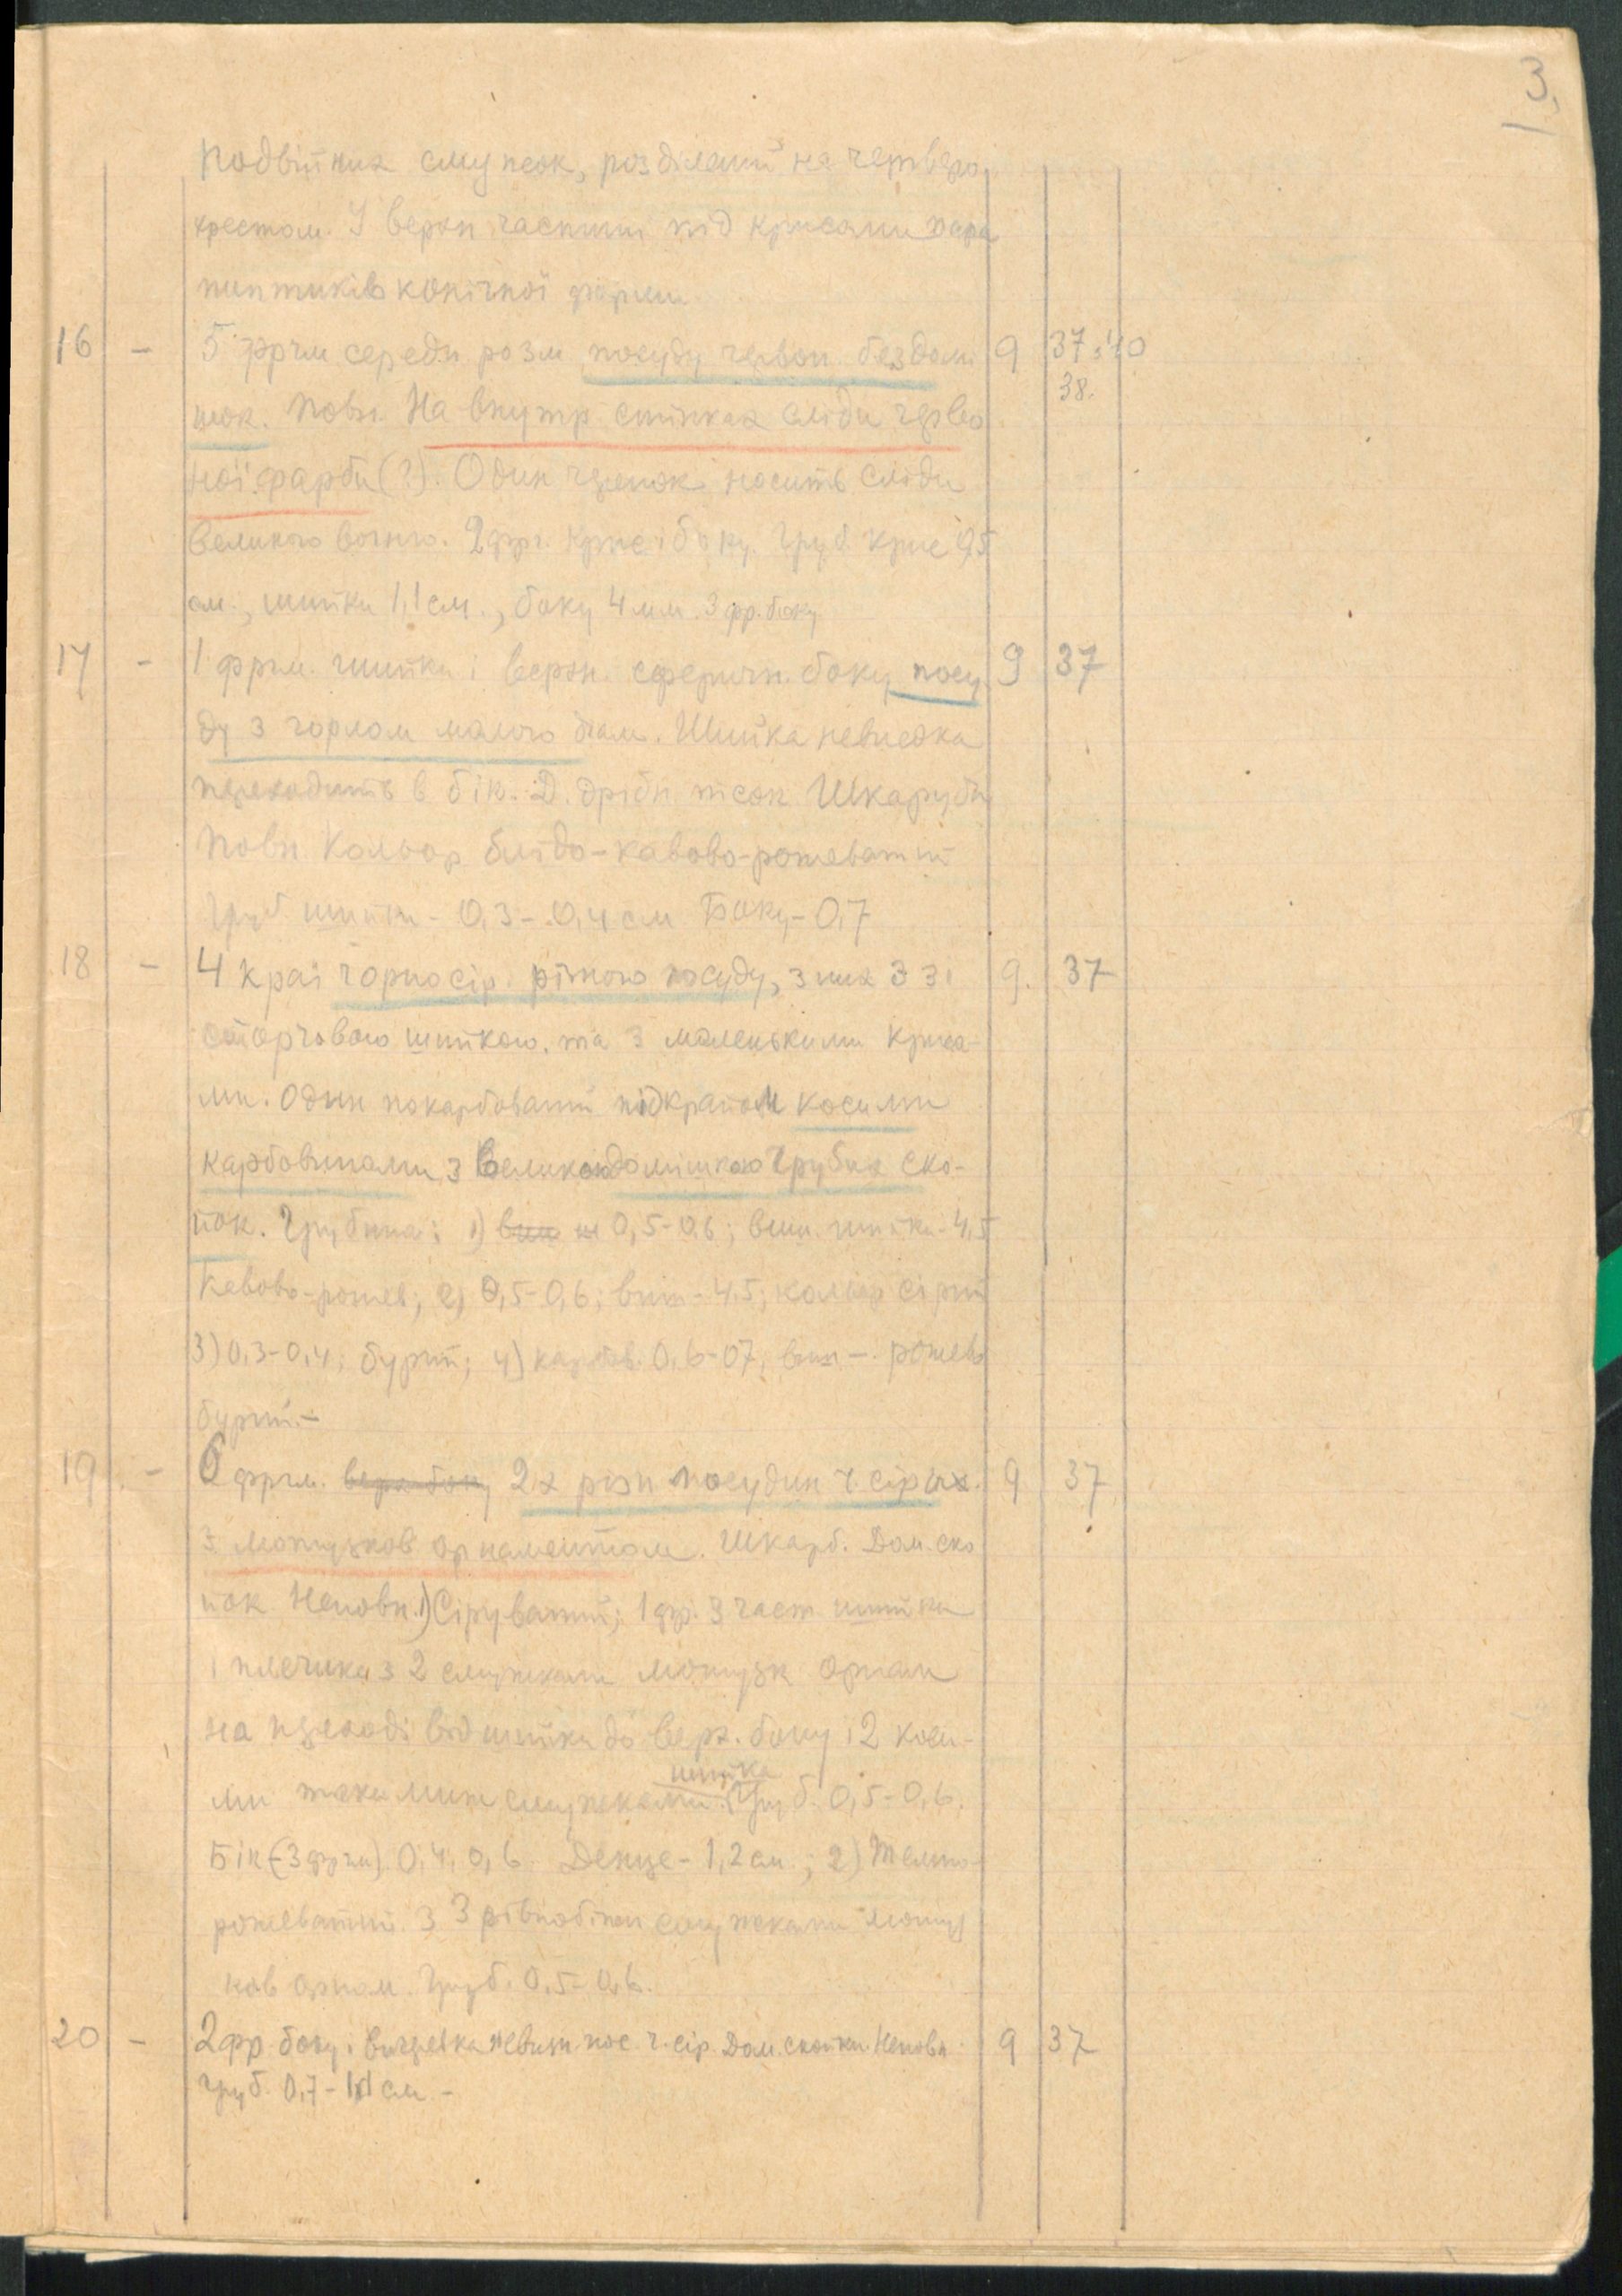 3.
подвійних смужок, розділений на четверо
хрестом. У верхн. частині під крисами пара
пиптиків конічної форми.
16 – 5 фрчм середн розм посуду червон. без дом. 9 37, 40
шок. Повн. На внутр. стінках сліди черво 38.
ної фарби (?). Один черепок носить сліди
великого вогню. 2 фрг. крис і боку. Груб. крис 0,5
см., шийки 1,1 см., боку 4 мм. 3 фр. боку
17 – 1 фргм. шийки і верхн. сферичн. боку посу 9 37
ду з горлом малого діам. Шийка невисока
переходить в бік. Д. дрібн. тсок Шкарубк.
Повн Кольор блідо-кавово-рожеватий
Груб. шийки – 0,3 – 0,4 см Боку – 0,7
18 – 4 краї чорносір. різного посуду, з них 3 зі 9. 37
сторчовою шийкою. та з маленькими криса-
ми. Один покарбований під краєм косими
карбовинами з великою домішкою грубих ско-
йок. Грубина: 1) вис ш 0,5-0,6; виш. шийки – 4,5
Кавово-рожев; 2) 0,5-0,6; виш – 4,5; кольор сірий
3) 0,3-0,4; бурий; 4) карбов. 0,6-07, виш –. рожево
бурий. –
19 – 6 фргм. верх боку 2х різн посудин ч. сірих. 9 37
З мотузков орнаментом. Шкарб. Дом. ско
йок. Неповн. 1) Сіруватий; 1 фр. з част. шийки
і плечика з 2 смужками мотузк орнам
на переході від шийки до верх. боку і 2 коси-
шийка
ми такими ж смужками. Груб. 0,5-0,6.
Бік (-3 фргм) 0,4, 0,6. Денце – 1,2 см.; 2) Темно-
рожеватий. З 3 рівнобіжн смужками мотуз
ков орном. Груб. 0,5-0,6.
20 – 2 фр. боку і вичерепка невизн. пос. ч. сір. Дом. скойки. Неповн. 9 37
Груб. 0,7 – 1,1 см. –